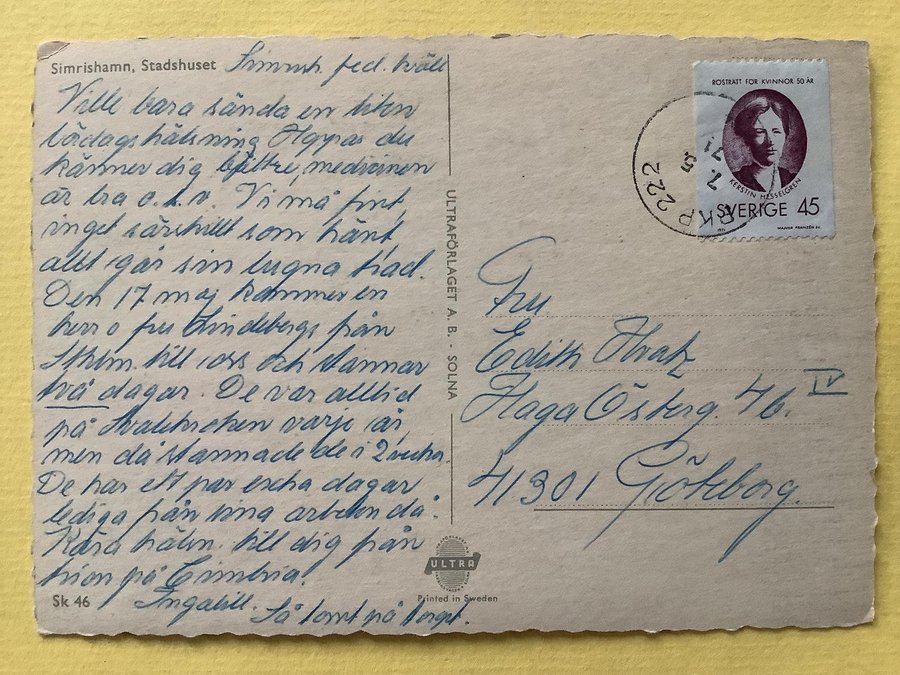 Simrishamn, Stadshuset
Simrish. fed. kväll
Ville bara sända en liten
lördagshälsning Hoppas du
känner dig bättre, medicinen
är bra o.s.v. Vi må fint,
inget särskillt som hänt,
allt går sin lugna stad.
Den 17 maj kommer en
herr o fru Lindebergs från
Sthlm. till oss och stannar
två dagar. De var alltid
på Svaleboken varje år,
men då stannade de i 2 veckor
De har ett par extra dagar
lediga från sina arbeten då.
Kära häln. till dig från
trion på Cimbria.
Ingalill. Så tomt på torget.
Sk 46
ULTRAFÖRLAGET A. B. - SOLNA
ULTRA
Printed in Sweden
RÖSTRÄTT FÖR KVINNOR 50 ÅR
KERSTIN HESSELGREN
SVERIGE 45
MAJVOR FRANZÉN SC.
PKP 222
7. 5 71
Fru
Edith
Haga Österg. 4b. IV
41301 Göteborg.